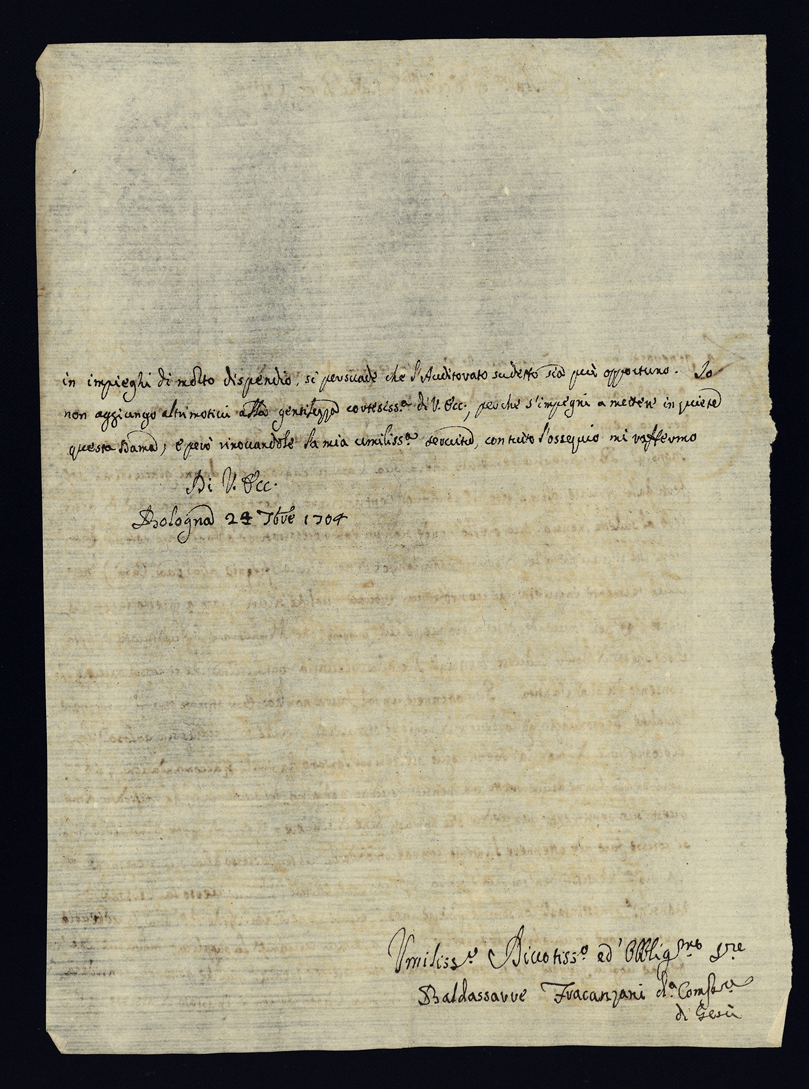 in impieghi di molto dispendio, si persuade che l'Auditorato sudetto sia più opportuno. Io
non aggiungo altri motivi alla gentilezza cortesiss.ª di V. Ecc., perche s'impegni a mettere in quiete
questa Dama; e però rinovandole la mia umiliss.ª servitù, con tutto l'ossequio mi raffermo
Di V. Ecc.
Bologna 24 7bre 1704
Umiliss.º Divotiss.º ed' Obblig.mo S.re
Baldassarre Fracanzani d.ª Comp.ª
di Gesù